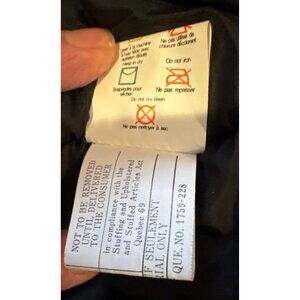 laver à la machine
à l'eau tiède avec
hang to dry
Suspendre pour
sécher
Ne pas utiliser de
chlorure décolorant
Do not iron
Ne pas repasser
Do not dry clean
Ne pas nettoyer à sec
NOT TO BE REMOVED
UNTIL DELIVERED
TO THE CONSUMER
in compliance with the
Stuffing and Upholstered
and Stuffed Articles Act
Quebec 69
F SEULEMENT
IAL ONLY
QUE.NO. 1759-228